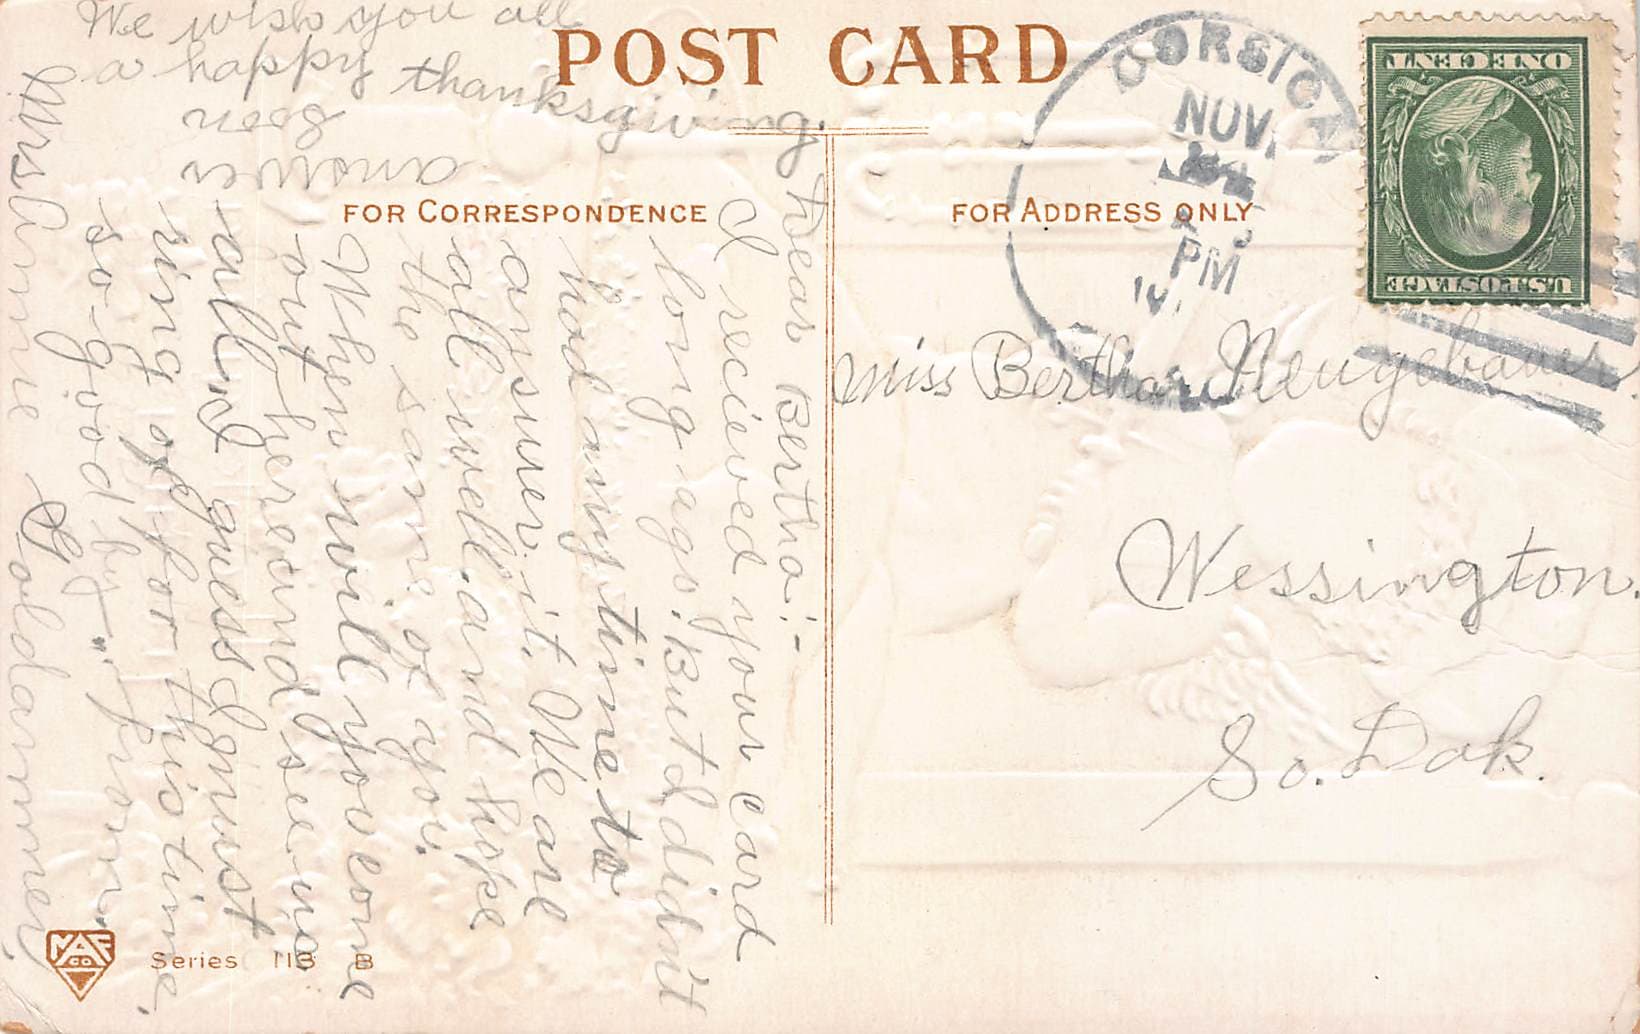 POST CARD
FOR CORRESPONDENCE
FOR ADDRESS ONLY
We wish you all
a happy thanksgiving
Dear Bertha:-
I recieved your card
long ago. But I didn't
had my time to
aynsuwer it. We are
all well and hope
the same of you.
When will you come
out here and see us
all, I guess I must
ring off for this time.
so-good by. from
Mrs Annie Goldammer,
anower
soon
Miss Bertha Neugebauer
Wessington.
So. Dak.
CORSICA
NOV.
PM
U.S. POSTAGE
ONE CENT
MAF
CO
Series 113 B